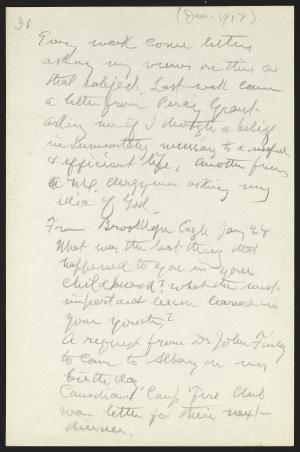 36
(Jan. 1917)
Every week come letters
asking my views on this or
that subject. Last week came
a letter from Percy Grant
asking me if I thought a belief
in immortality necessary to a useful
& efficient life, another from
a clergyman asking my
idea of God.
From Brooklyn Eagle Jany 28
What was the best thing that
happened to you in your
childhood? what the most
important lesson learned in
your youth?
A request from Dr John Finley
to come to Albany on my
birthday.
Canadian Camp Fire Club
want letter for their next
dinner.